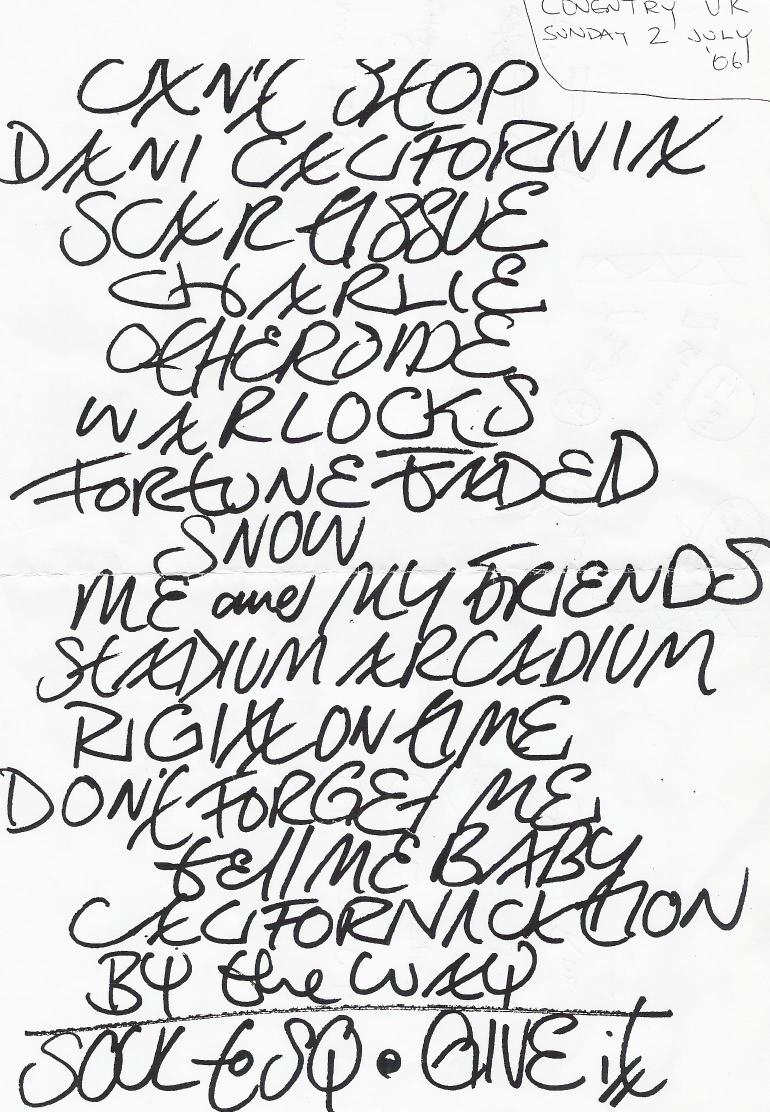 COVENTRY UK
SUNDAY 2 JULY
'06
CAN'T STOP
DANI CALIFORNIA
SCAR TISSUE
CHARLIE
OTHERSIDE
WARLOCKS
FORTUNE FADED
SNOW
ME and MY FRIENDS
STADIUM ARCADIUM
RIGHT ON TIME
DON'T FORGET ME
tell ME BABY
CALIFORNICATION
BY the WAY
SOUL to SQ • GIVE it